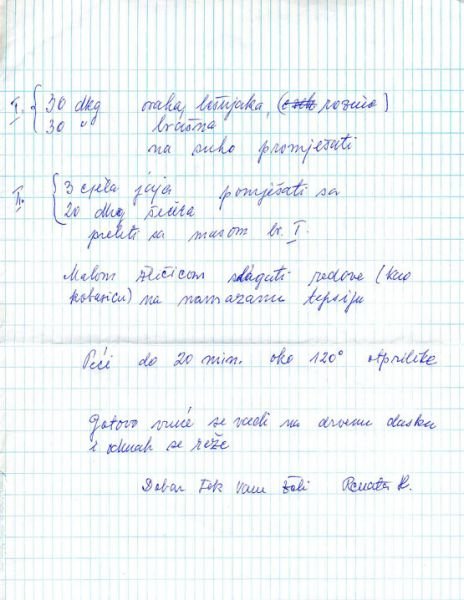 I. { 30 dkg oraha, lešnjaka, (rozine)
30 " brašna
na suho promješati
II. { 3 cjela jaja pomješati sa
20 dkg šećera
preliti sa masom br. I.
Malom žličicom slagati redove (kao
kobasicu) na namazanu tepsiju
Peći do 20 min. oko 120° otprilike
Gotovo vruće se vadi na drvenu dasku
i odmah se reže
Dobar tek Vam želi Renata H.